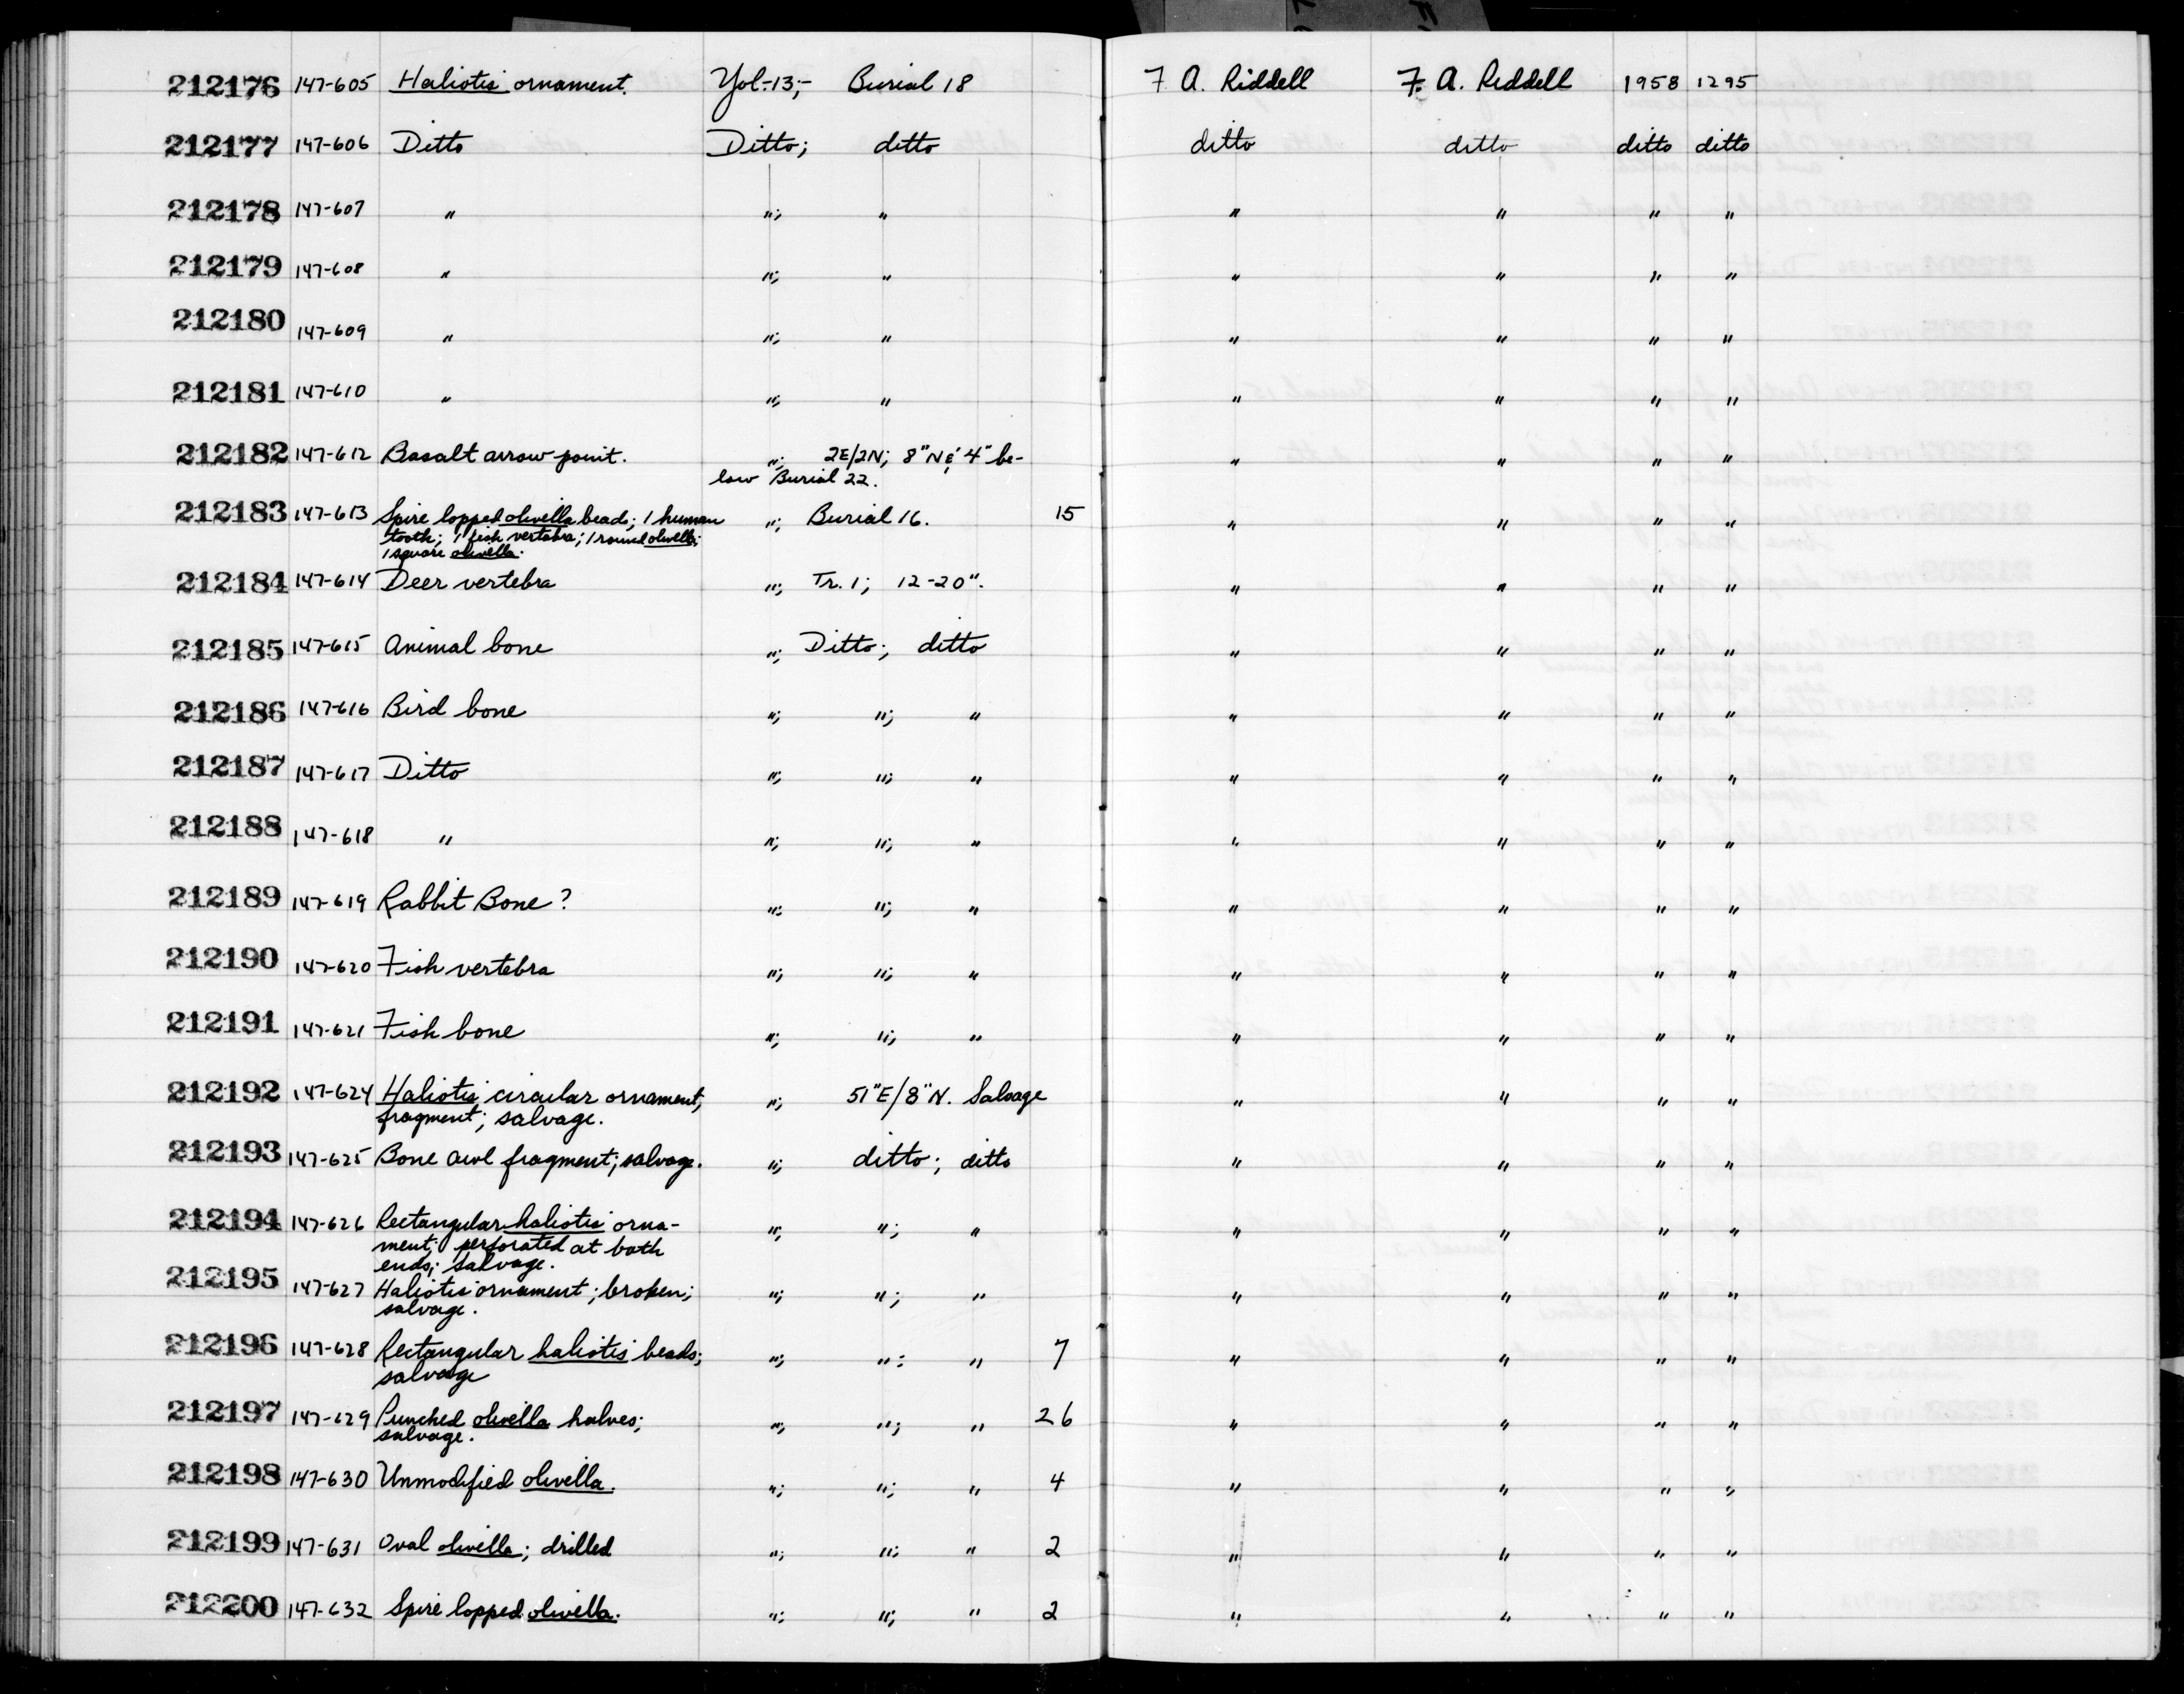 212176 147-605 Haliotis ornament. Yol.-13;- Burial 18 F. A. Riddell F. A. Riddell 1958 1295
212177 147-606 Ditto Ditto; ditto ditto ditto ditto ditto
212178 147-607 " "; " " " " "
212179 147-608 " "; " " " " "
212180 147-609 " "; " " " " "
212181 147-610 " "; " " " " "
212182 147-612 Basalt arrow point. "; 2E/2N; 8"N & 4" be-
low Burial 22. " " " "
212183 147-613 Spire lopped olivella beads; 1 human "; Burial 16. 15 " " " "
tooth; 1 fish vertabra; 1 round olivella;
1 square olivella.
212184 147-614 Deer vertebra "; Tr. 1; 12-20". " " " "
212185 147-615 Animal bone "; Ditto; ditto " " " "
212186 147-616 Bird bone "; "; " " " " "
212187 147-617 Ditto "; "; " " " " "
212188 147-618 " "; "; " " " " "
212189 147-619 Rabbit Bone? "; "; " " " " "
212190 147-620 Fish vertebra "; "; " " " " "
212191 147-621 Fish bone "; "; " " " " "
212192 147-624 Haliotis circular ornament, "; 51"E/8"N. Salvage " " " "
fragment; salvage.
212193 147-625 Bone awl fragment; salvage. "; ditto; ditto " " " "
212194 147-626 Rectangular haliotis orna- "; "; " " " " "
ment; perforated at both
ends; salvage.
212195 147-627 Haliotis ornament; broken; "; "; " " " " "
salvage.
212196 147-628 Rectangular haliotis beads; "; "; " 7 " " " "
salvage
212197 147-629 Punched olivella halves; "; "; " 26 " " " "
salvage.
212198 147-630 Unmodified olivella. "; "; " 4 " " " "
212199 147-631 Oval olivella; drilled "; "; " 2 " " " "
212200 147-632 Spire lopped olivella. "; "; " 2 " " " "